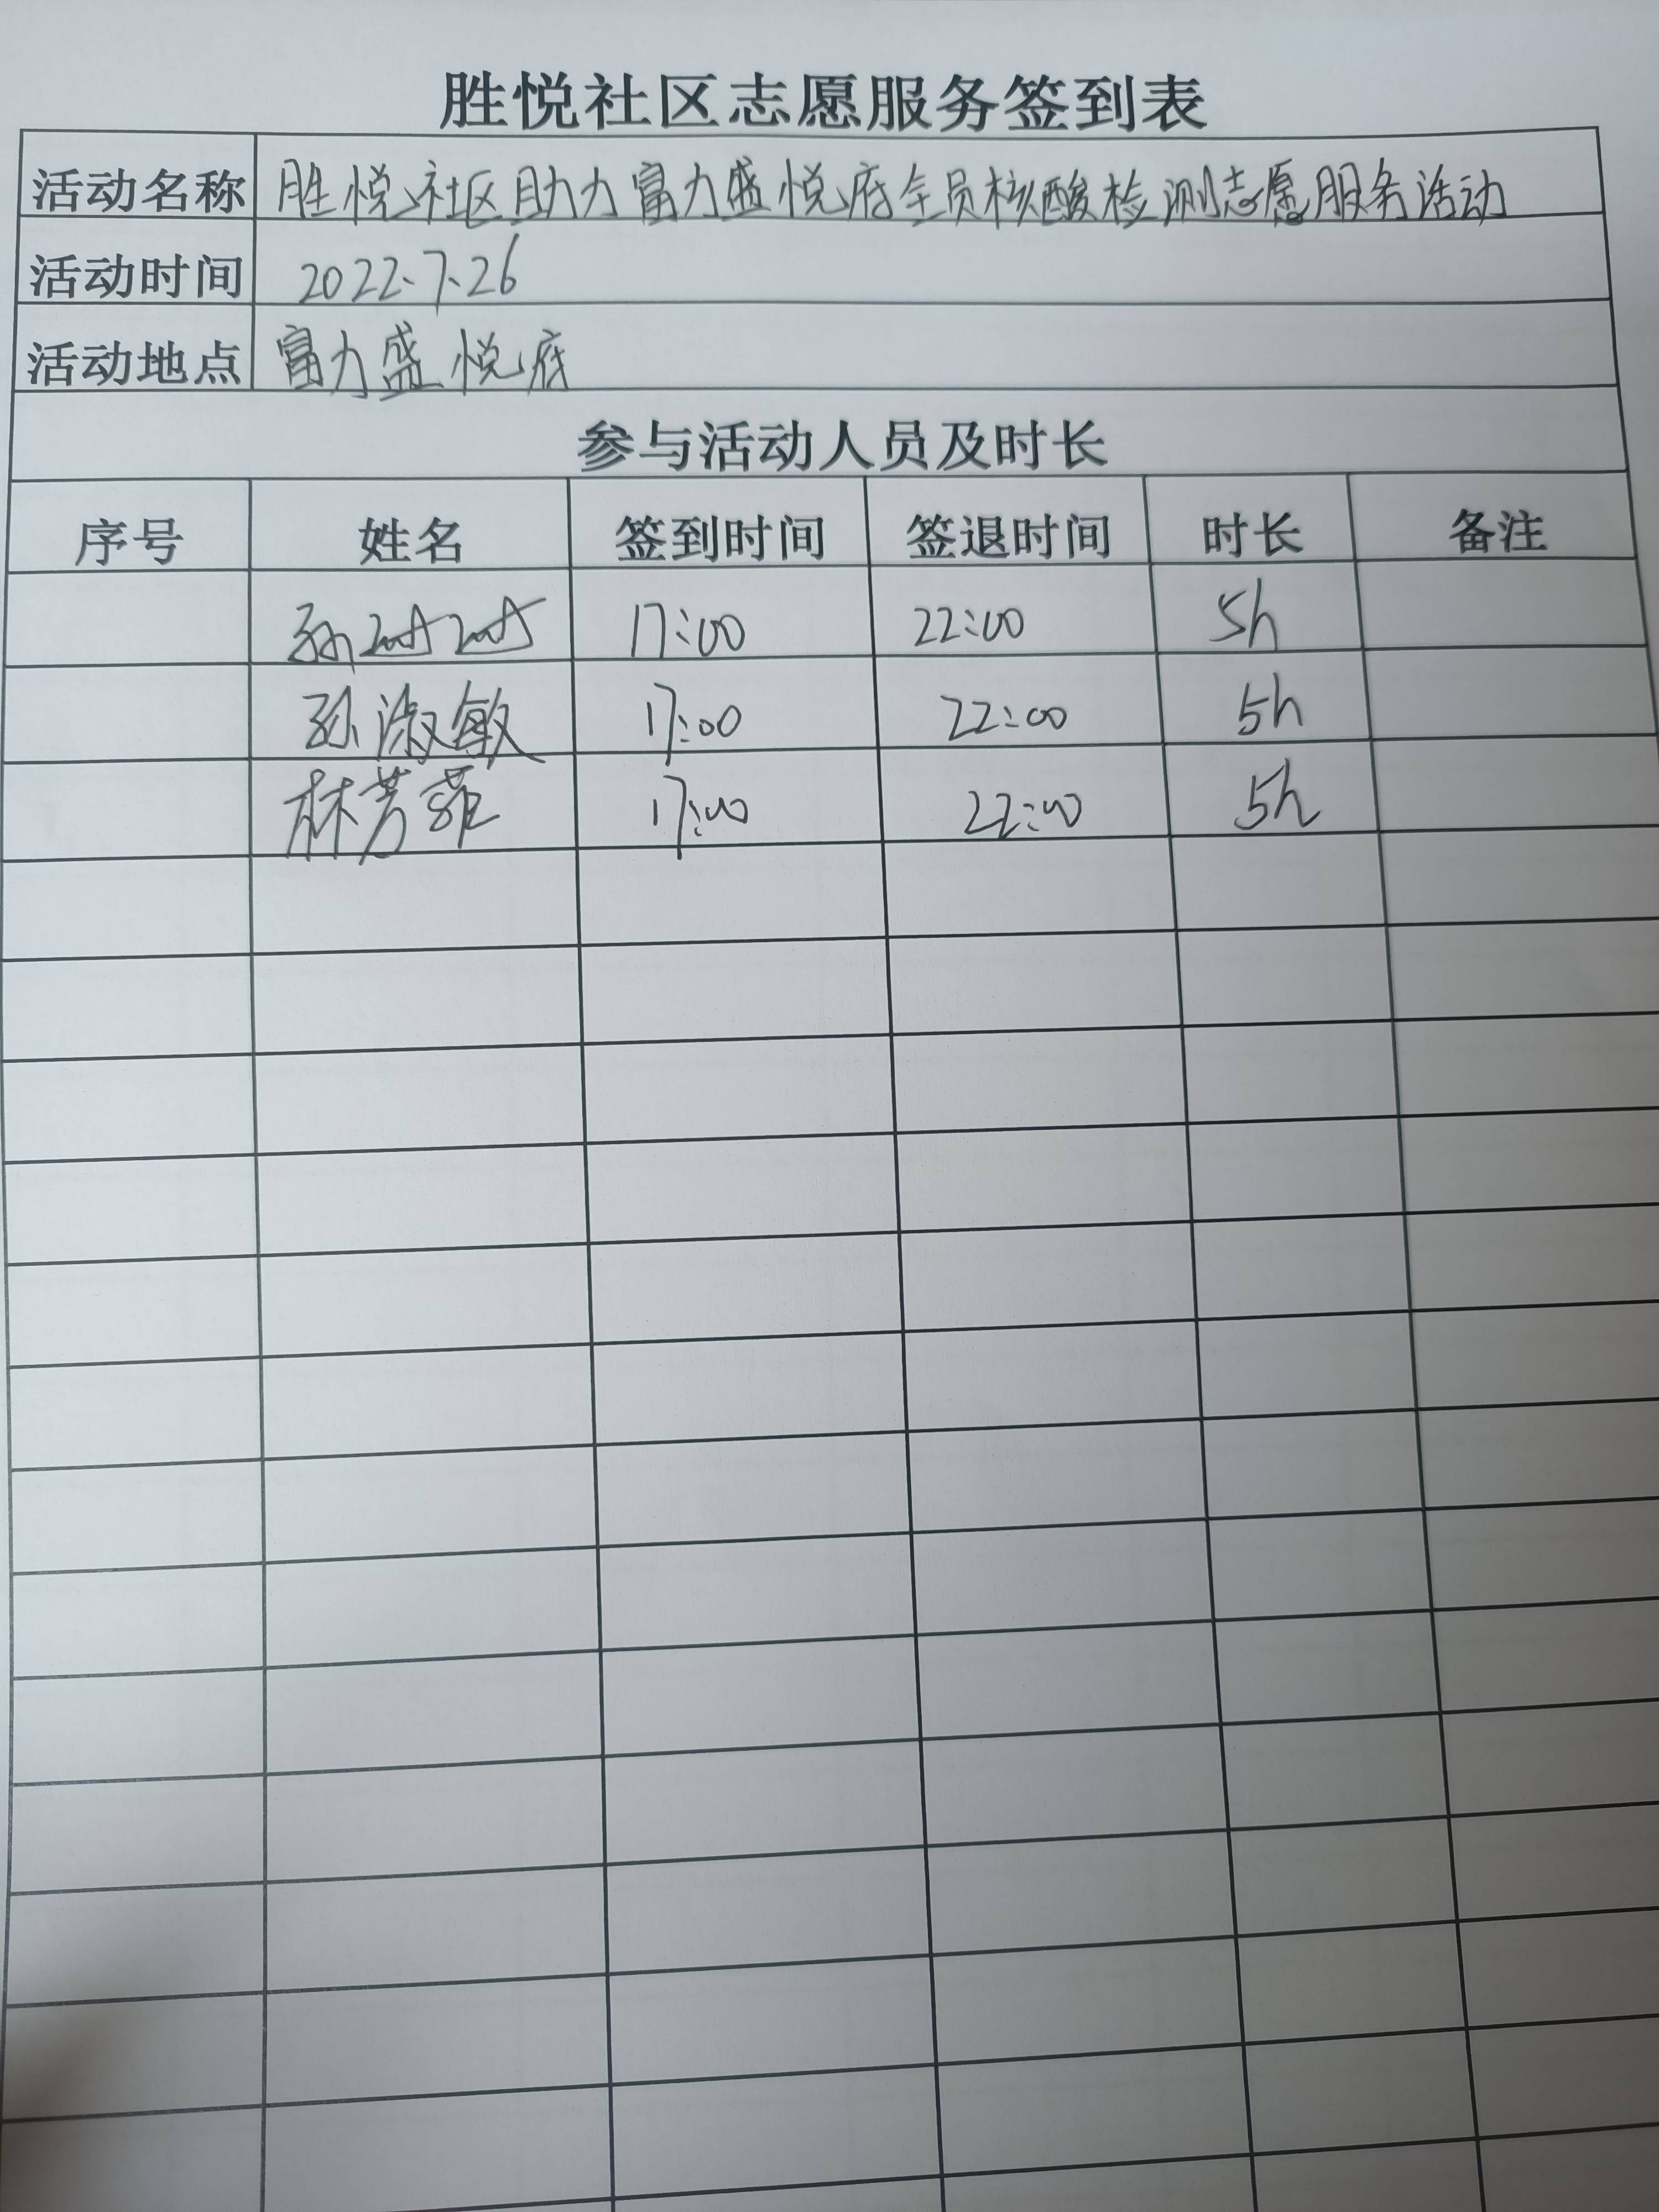 胜悦社区志愿服务签到表
活动名称 胜悦社区助力富力盛悦府全员核酸检测志愿服务活动
活动时间 2022.7.26
活动地点 富力盛悦府
参与活动人员及时长
序号 姓名 签到时间 签退时间 时长 备注
孙 17:00 22:00 5h
孙淑敏 17:00 22:00 5h
林芳菲 17:00 22:00 5h